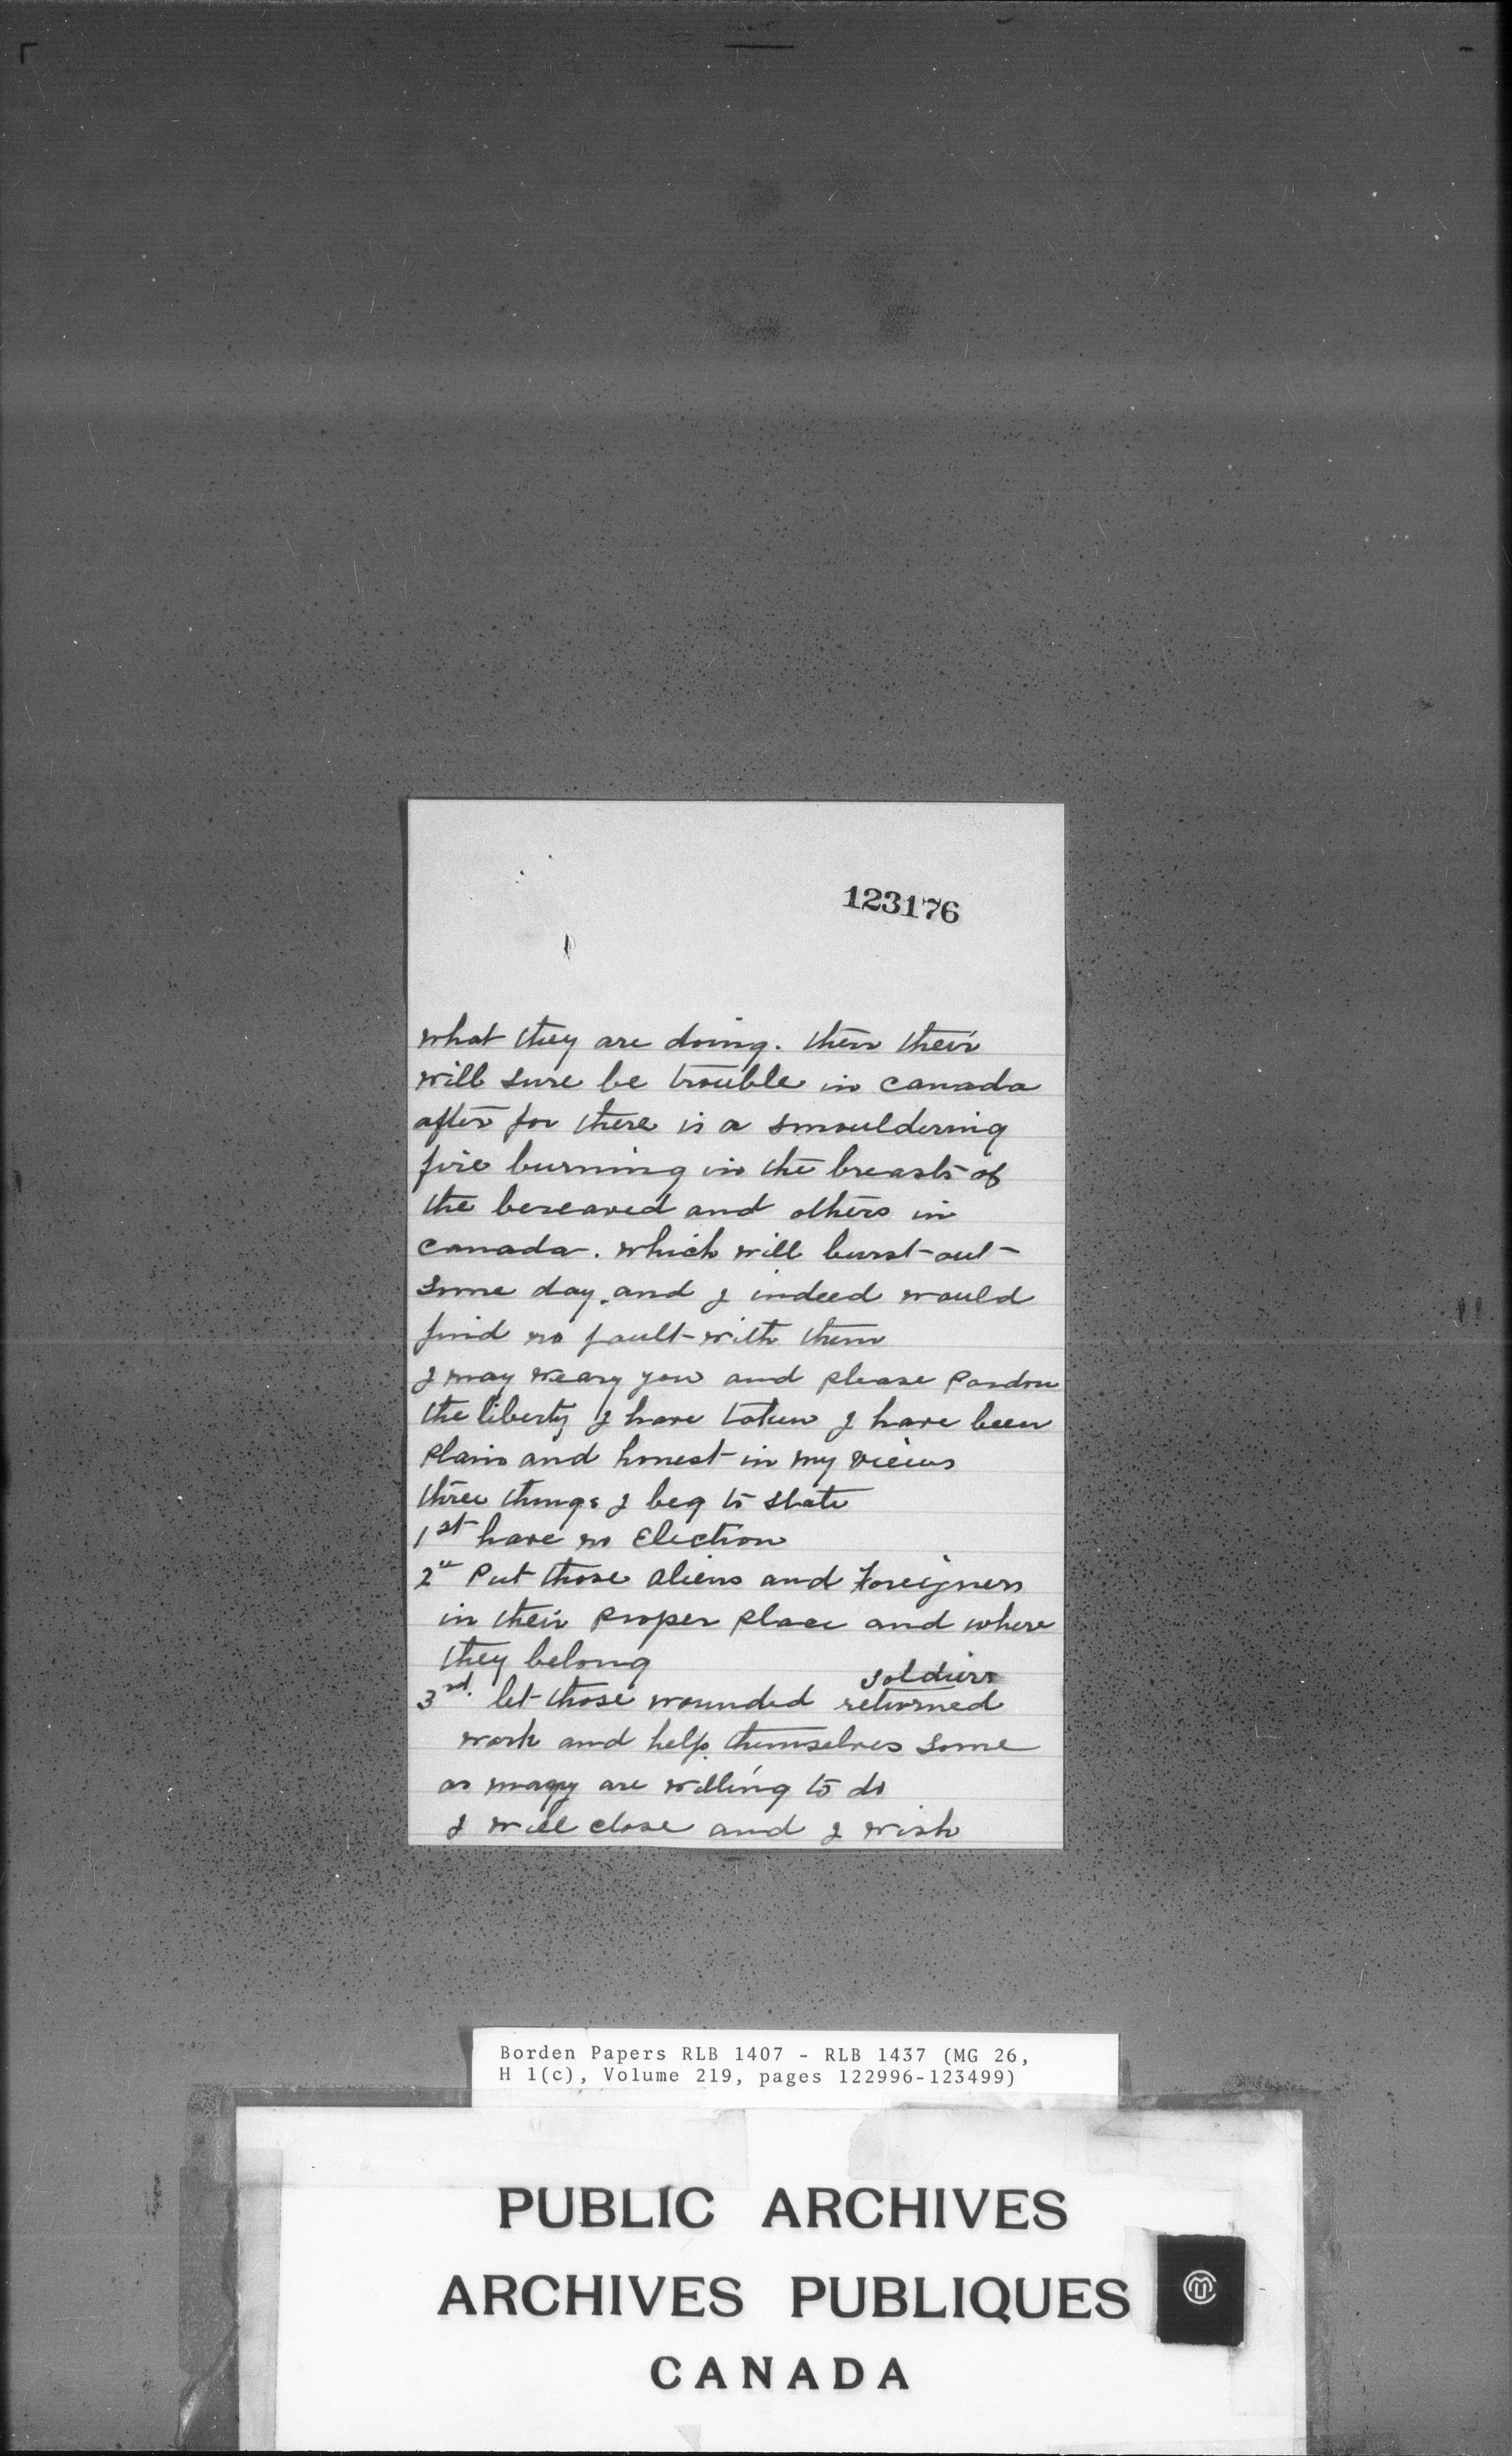 123176
what they are doing. then their
will sure be trouble in canada
after for there is a smouldering
fire burning in the breasts of
the bereaved and others in
canada. which will burst out
some day. and I indeed would
find no fault with them
I may weary you and please Pardon
the liberty I have taken I have been
Plain and honest in my views
three things I beg to state
1st have no Election
2nd Put those aliens and Foreigners
in their Proper Place and where
they belong
soldiers
3rd. let those wounded returned
work and help themselves some
as many are willing to do
I will close and I wish
Borden Papers RLB 1407 - RLB 1437 (MG 26,
H 1(c), Volume 219, pages 122996-123499)
PUBLIC ARCHIVES
ARCHIVES PUBLIQUES
CANADA